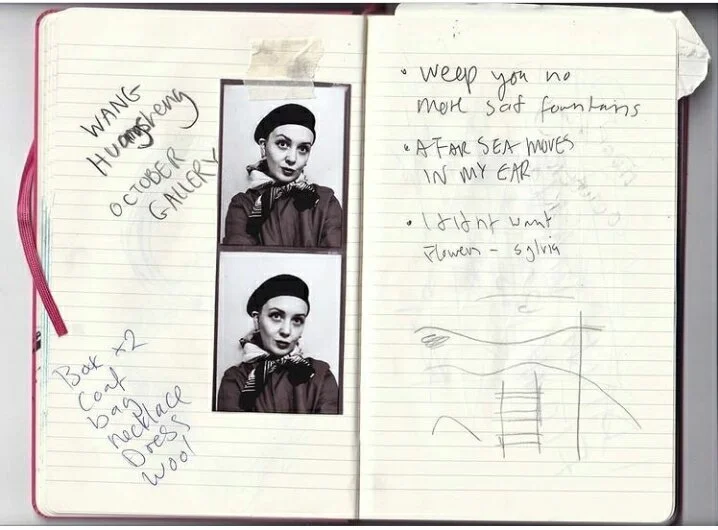 WANG
Huangsheng
OCTOBER
GALLERY
Box x2
Coat
bag
necklace
Dress
wool
• weep you no
more sad fountains
• A FAR SEA MOVES
IN MY EAR
• I didnt want
Flowers – sylvia